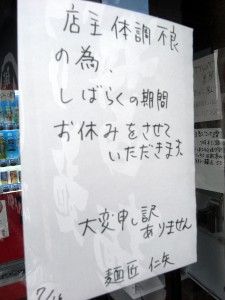 店主体調不良
の為、
しばらくの期間
お休みをさせて
いただきます
大変申し訳
ありません
麺匠 仁矢